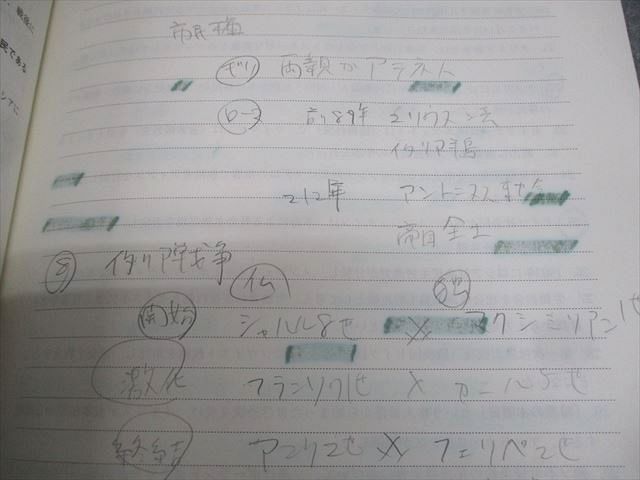 市民権
ギリ 両親がアテネ人
ローマ 前89年 ユリウス法
イタリア半島
212年 アントニヌス勅令
帝国全土
⑧ イタリア戦争
仏
開始 シャルル8せ × マクシミリアン1せ
激化 フランソワ1せ × カール5せ
終結 アンリ2せ × フェリペ2せ
最後に
民である